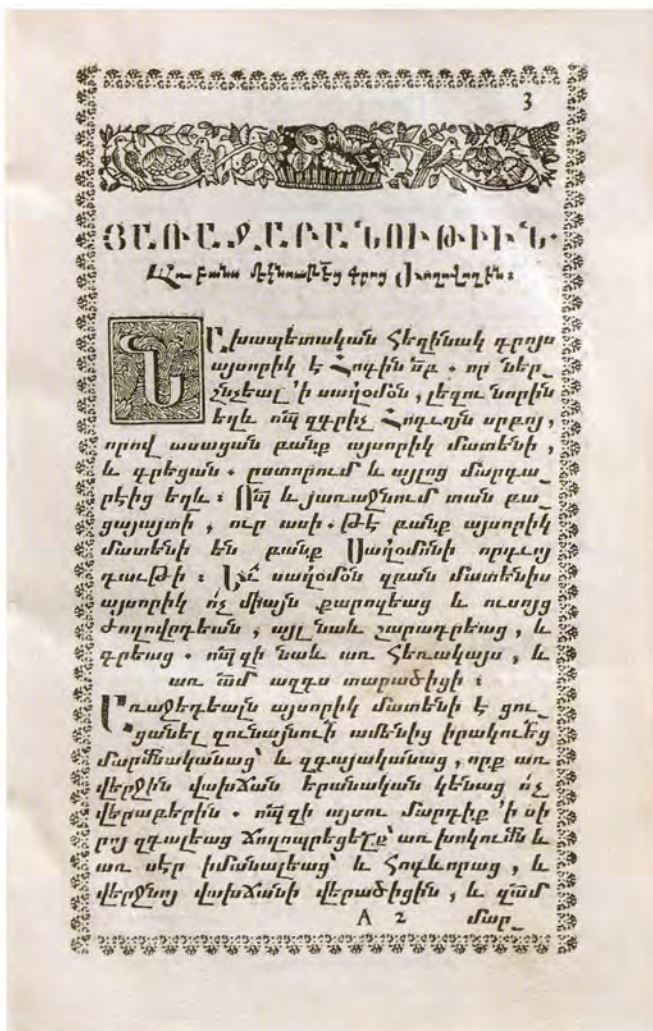 3
ՅԱՌԱՋԱԲԱՆՈՒԹԻՒՆ.
Առ բանս մեկնութեց գրոց Ժողովողին։
Նախապետական հեղինակ գրոյս
այսորիկ է Հոգին սբ . որ ներ_
շնչեալ ՚ի սաղօմօն , լեզու նորին
եղև ոպ զգրիչ Հոգւոյն սրբոյ ,
որով ասացան բանք այսորիկ մատենի ,
և գրեցան . ըստորում և այլոց մարգա_
րէից եղև ։ Ոպ և յառաջնում տան բա_
ցայայտի , ուր ասի . Թէ բանք այսորիկ
մատենի են բանք Սաղօմօնի որդւոյ
դաւթի ։ սաղօմօն զբան մատենիս
այսորիկ ոչ միայն քարոզեաց և ուսոյց
ժողովրդեան , այլ նաև շարադրեաց , և
գրեաց . ոպ զի նաև առ հեռակայս , և
առ ամ ազգս տարածիցի ։
Առաջեդեալն այսորիկ մատենի է ցու_
ցանել զունայնուի ամենից իրակուեց
մարմնականաց՝ և զգայականաց , որք առ
վերջին վախճան երանական կենաց ոչ
վերաբերին . ոպ զի այսու մարդիք ՚ի սի
րոյ զգալեաց ճողոպրեցելք՝ առ խոկումն և
առ սէր իմանալեաց՝ և հոգևորաց , և
վերջնոյ վախճանի վերածիցին , և զամ
A 2 մար_